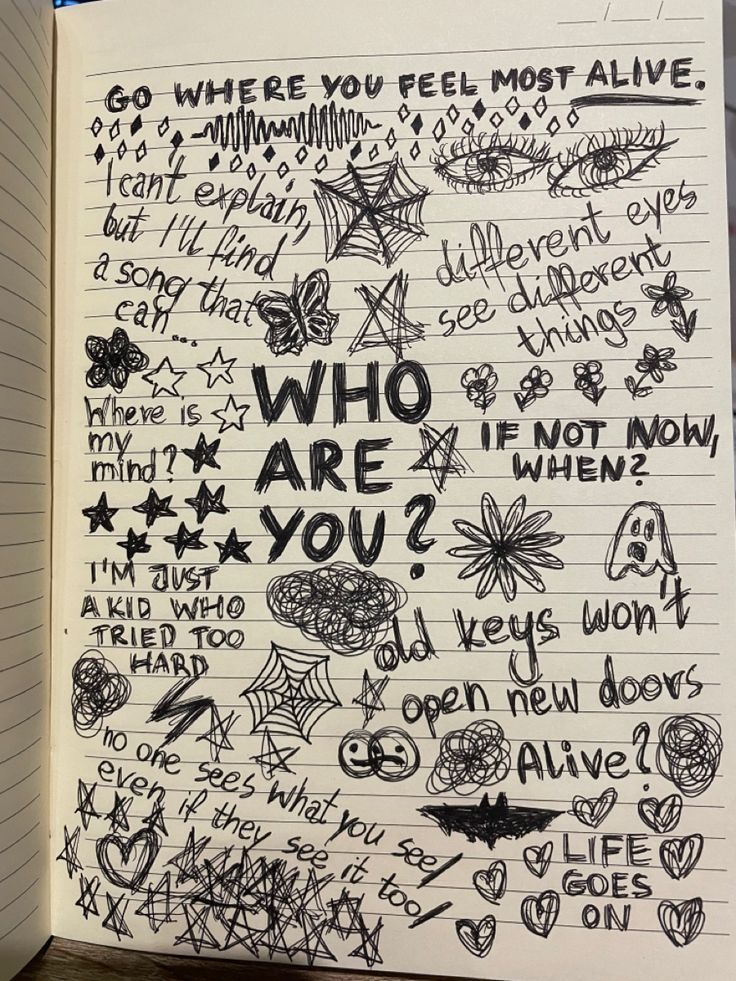 GO WHERE YOU FEEL MOST ALIVE.
I can't explain,
but I'll find
a song that
can...
different eyes
see different
things
WHO
ARE
YOU?
Where is
my
mind?
IF NOT NOW,
WHEN?
I'M JUST
A KID WHO
TRIED TOO
HARD
old keys won't
open new doors
Alive?
no one sees what you see/
even if they see it too/
LIFE
GOES
ON